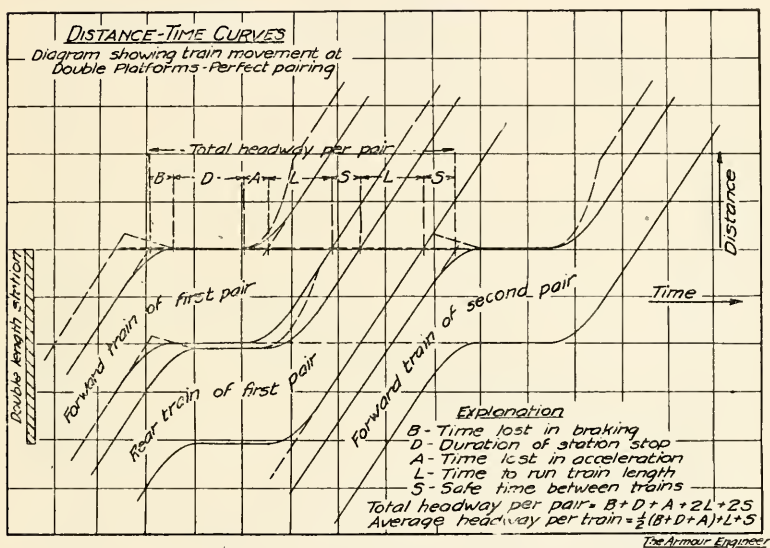 DISTANCE-TIME CURVES
Diagram showing train movement at
Double Platforms-Perfect pairing
Total headway per pair
B D A L S L S
Distance
Time
Double length station
Forward train of first pair
Rear train of first pair
Forward train of second pair
Explanation
B - Time lost in braking
D - Duration of station stop
A - Time lost in acceleration
L - Time to run train length
S - Safe time between trains
Total headway per pair = B+D+A+2L+2S
Average headway per train = ½(B+D+A)+L+S
The Armour Engineer